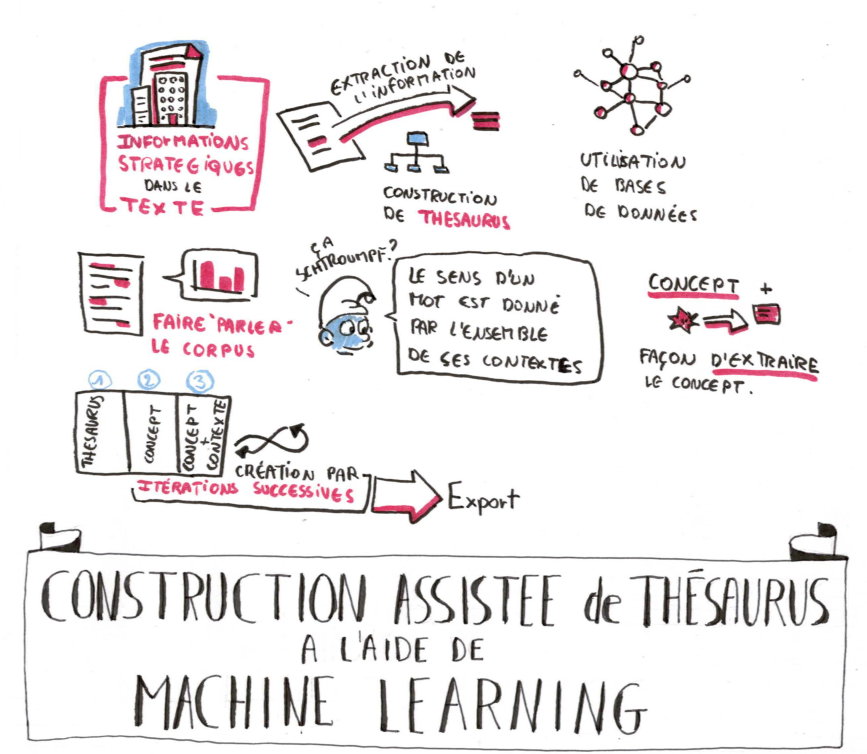 INFORMATIONS
STRATEGIQUES
DANS LE
TEXTE
EXTRACTION DE
L'INFORMATION
CONSTRUCTION
DE THESAURUS
UTILISATION
DE BASES
DE DONNÉES
FAIRE "PARLER"
LE CORPUS
ÇA
SCHTROUMPF?
LE SENS D'UN
MOT EST DONNÉ
PAR L'ENSEMBLE
DE SES CONTEXTES
CONCEPT +
FAÇON D'EXTRAIRE
LE CONCEPT.
1 2 3
THESAURUS
CONCEPT
CONCEPT
+
CONTEXTE
CRÉATION PAR
ITÉRATIONS SUCCESSIVES
Export
CONSTRUCTION ASSISTEE de THÉSAURUS
A L'AIDE DE
MACHINE LEARNING